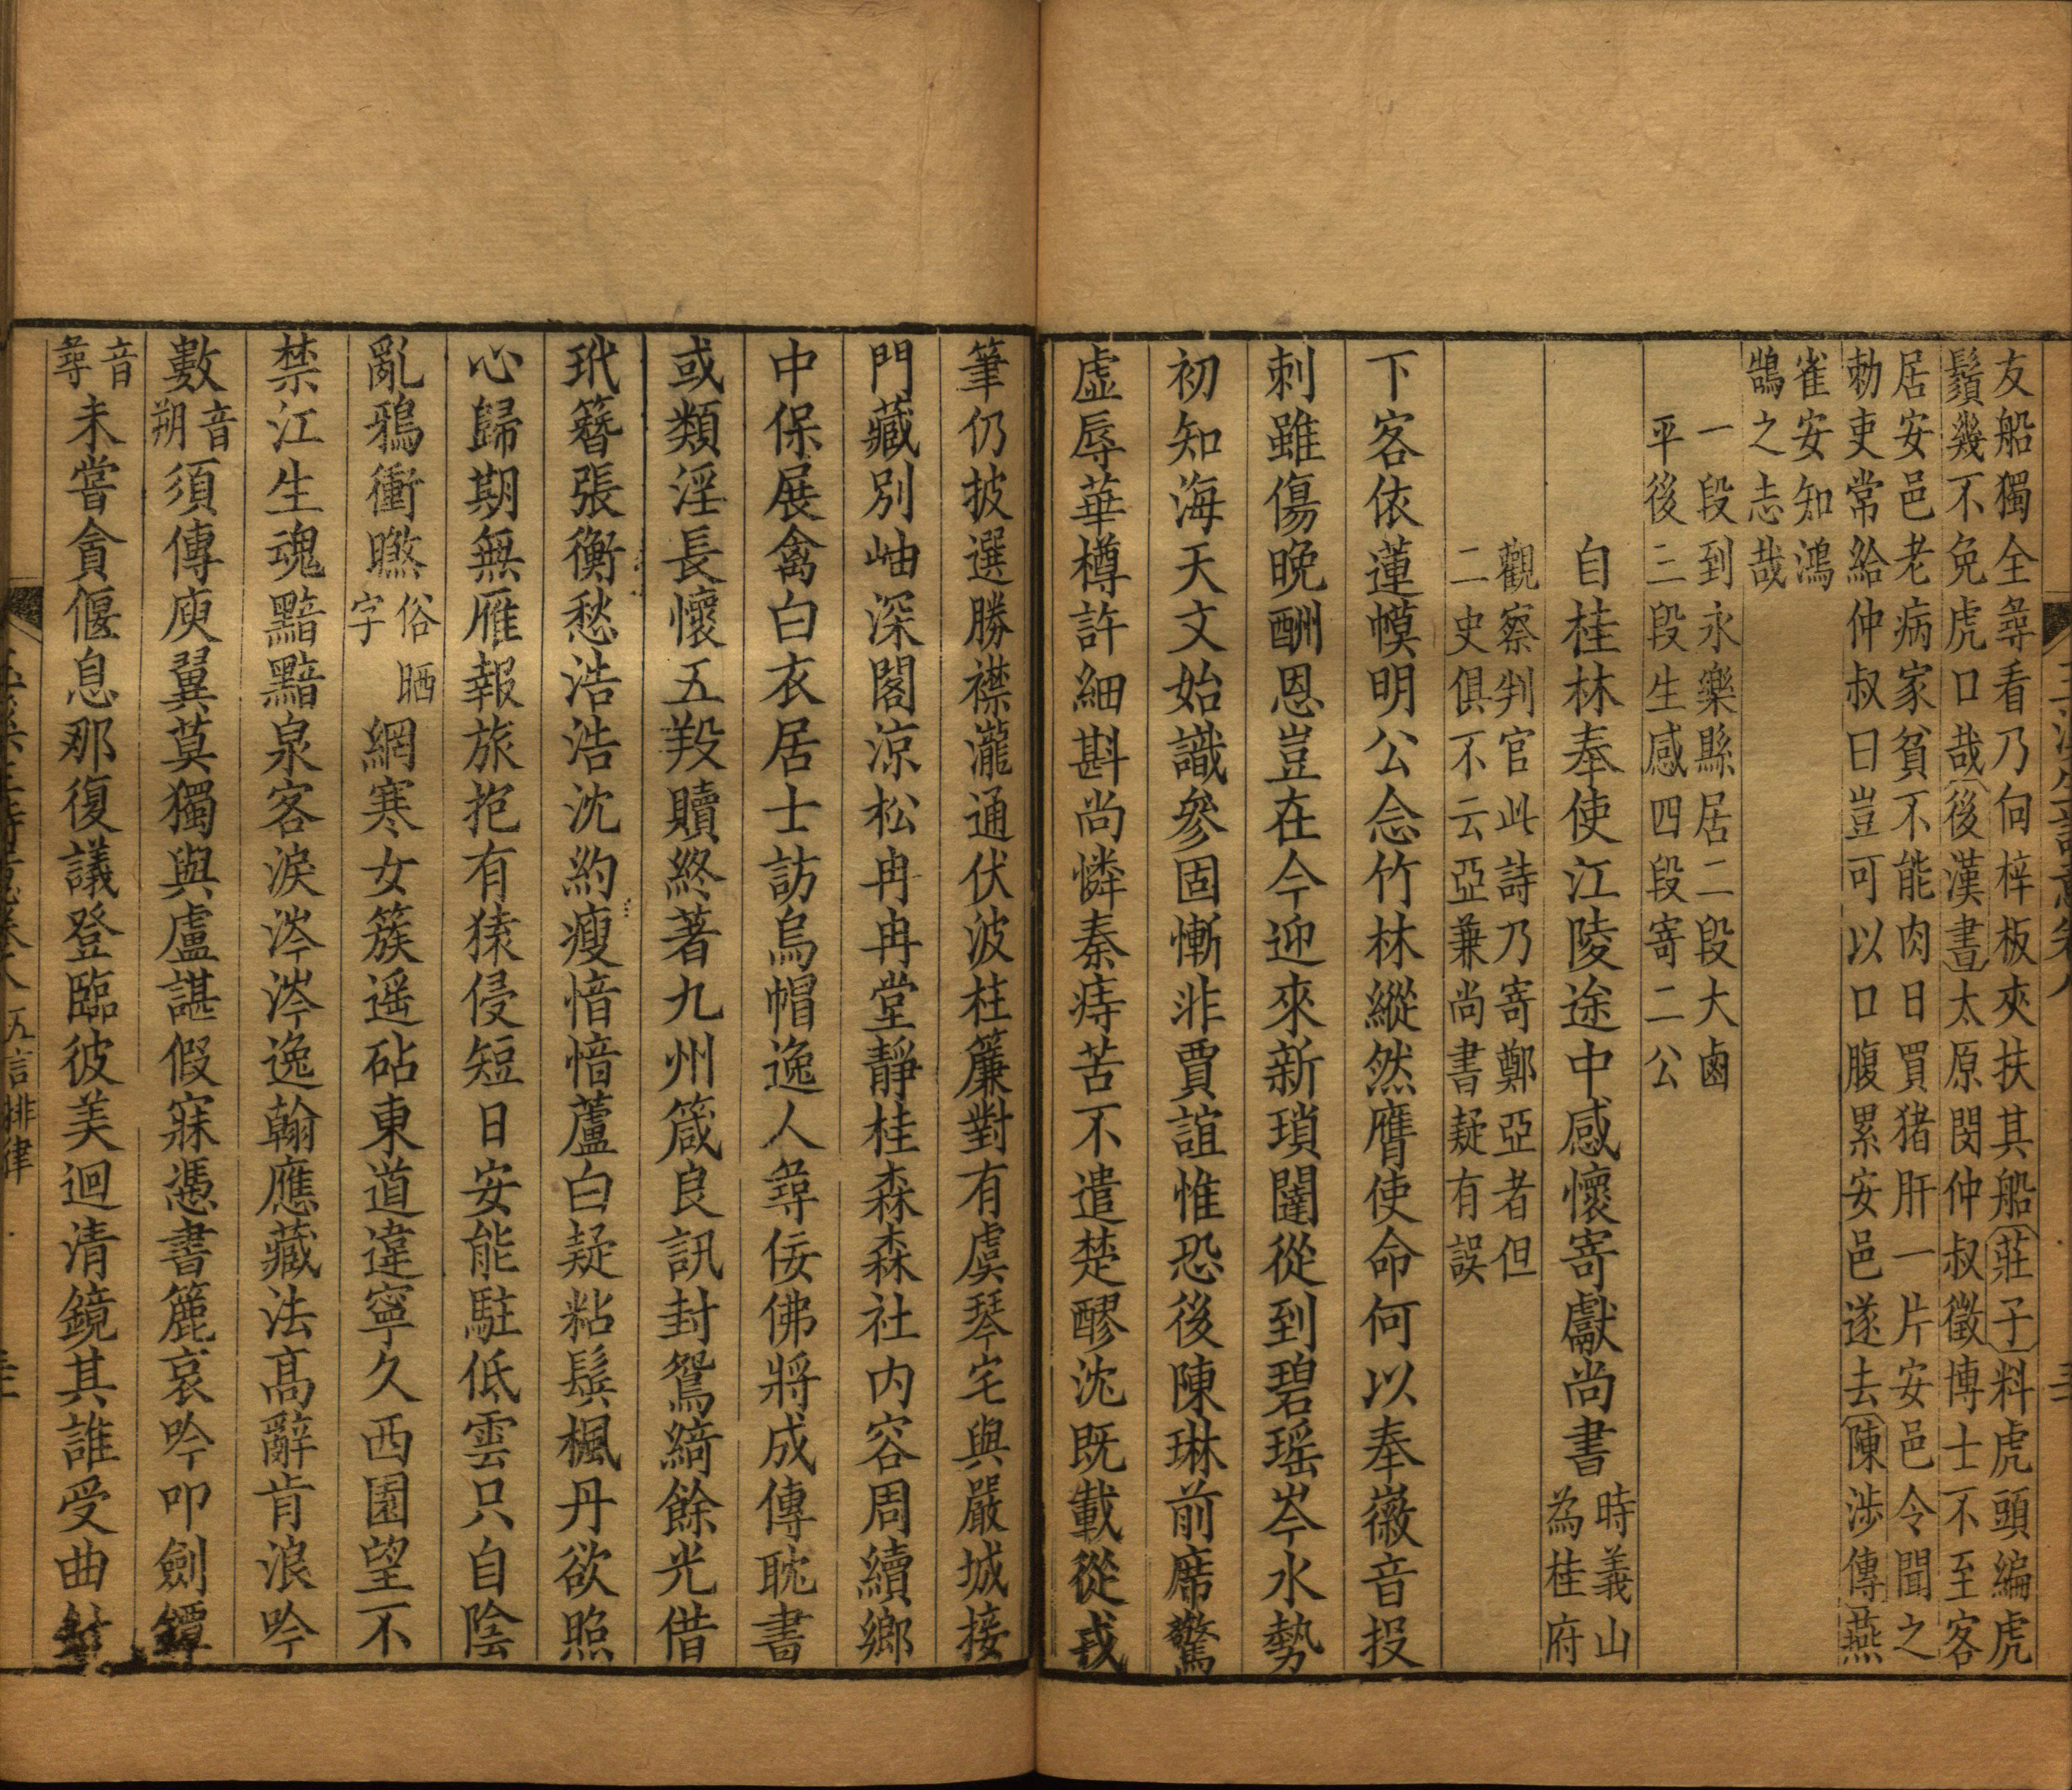 友船獨全尋看乃向梓板夾扶其船莊子料虎頭編虎
鬚幾不免虎口哉後漢書太原閔仲叔徵博士不至客
居安邑老病家貧不能肉日買猪肝一片安邑令聞之
勅吏常給仲叔曰豈可以口腹累安邑遂去陳涉傳燕
雀安知鴻
鵠之志哉
一段到永樂縣居二段大鹵
平後三段生感四段寄二公
自桂林奉使江陵途中感懷寄獻尚書時義山為桂府
觀察判官此詩乃寄鄭亞者但
二史俱不云亞兼尚書疑有誤
下客依蓮幙明公念竹林縱然膺使命何以奉徽音投
刺雖傷晚酬恩豈在今迎來新瑣闥從到碧瑤岑水勢
初知海天文始識參固慚非賈誼惟恐後陳琳前席驚
虛辱華樽許細斟尚憐秦痔苦不遣楚醪沈既載從戎
筆仍披選勝襟瀧通伏波柱簾對有虞琴宅與嚴城接
門藏別岫深閣涼松冉冉堂靜桂森森社內容周續鄉
中保展禽白衣居士訪烏帽逸人尋佞佛將成傳耽書
或類淫長懷五羖贖終著九州箴良訊封鴛綺餘光借
玳簪張衡愁浩浩沈約瘦愔愔蘆白疑粘鬢楓丹欲照
心歸期無雁報旅抱有猿侵短日安能駐低雲只自陰
亂鴉衝㬠俗晒字網寒女簇遥砧東道違寧久西園望不
禁江生魂黯黯泉客淚涔涔逸翰應藏法高辭肯浪吟
數音朔須傳庾翼莫獨與盧諶假寐憑書簏哀吟叩劍鐔
音尋未嘗貪偃息那復議登臨彼美迴清鏡其誰受曲
五言排律